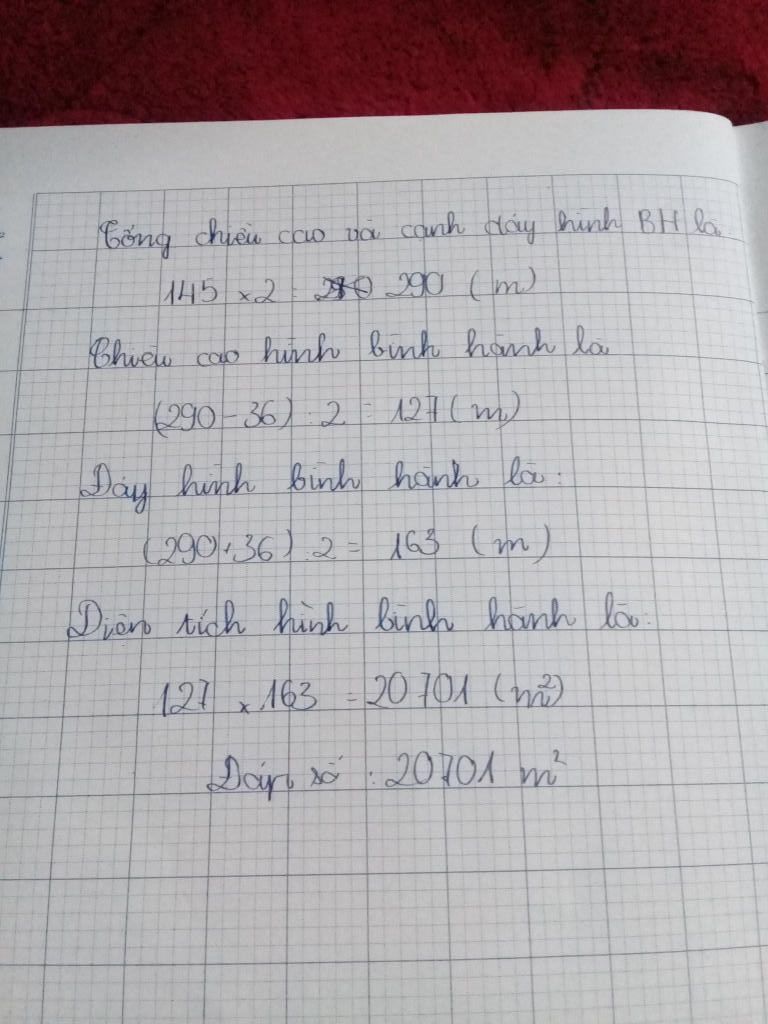 Tổng chiều cao và cạnh đáy hình BH là
145 x 2 = 290 (m)
Chiều cao hình bình hành là
(290 - 36) : 2 = 127 (m)
Đáy hình bình hành là:
(290 + 36) : 2 = 163 (m)
Diện tích hình bình hành là:
127 x 163 = 20701 (m²)
Đáp số : 20701 m²